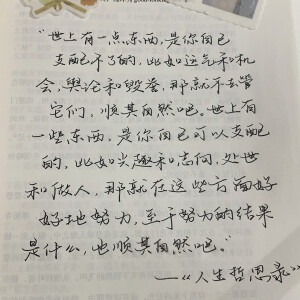 “世上有一点东西,是你自己
支配不了的,比如运气和机
会,舆论和毁誉,那就不去管
它们,顺其自然吧。世上有
一些东西,是你自己可以支配
的,比如兴趣和志向,处世
和做人,那就在这些方面好
好地努力,至于努力的结果
是什么,也顺其自然吧。”
——《人生哲思录》